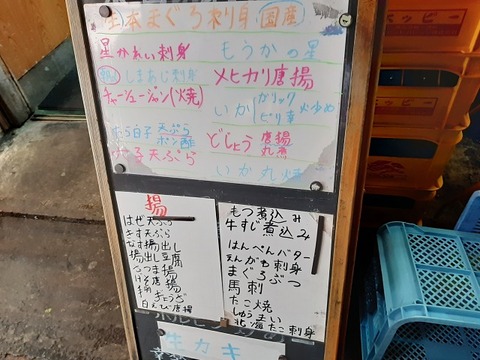 生本まぐろ刺身(国産)
星かれい刺身
しまあじ刺身
チャーシュージョン(焼)
白子 天ぷら
ポン酢
天ぷら
もうかの星
メヒカリ唐揚
いか ガリック
ピリ辛
炒め
どじょう 唐揚
丸煮
いか丸焼
揚
はぜ天ぷら
きす天ぷら
なす揚出し
揚出し豆腐
さつま揚
げそ唐揚
手羽唐揚
ぎょうざ
白えび唐揚
もつ煮込み
牛すじ煮込み
はんぺんバター
えんがわ刺身
まぐろぶつ
馬刺
たこ焼
しゅうまい
北海たこ刺身
生カキ